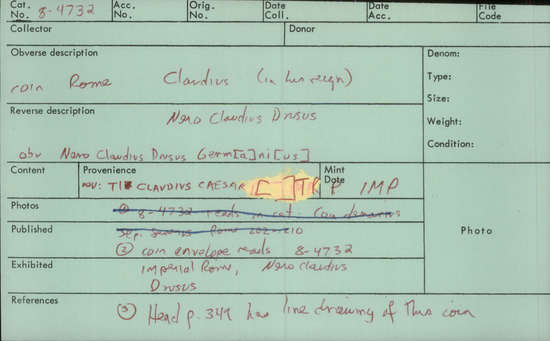 Cat. No. 8-4732 Acc. No. Orig. No. Date Coll. Date Acc. File Code
Collector Donor
Obverse description Denom:
coin Rome Claudius (in his reign) Type:
Size:
Reverse description Weight:
Nero Claudius Drusus
Condition:
obv Nero Claudius Drusus Germ[a]ni[cus]
Content Provenience Mint Date
rev: TI CLAUDIUS CAESAR [ ] TR P IMP
Photos Photo
8-4732 reads in cat. Coin denarius
Published
Sep. Severus Rome 202-210
② coin envelope reads 8-4732
Exhibited
Imperial Rome, Nero Claudius
Drusus
References
③ Head p. 349 has line drawing of this coin